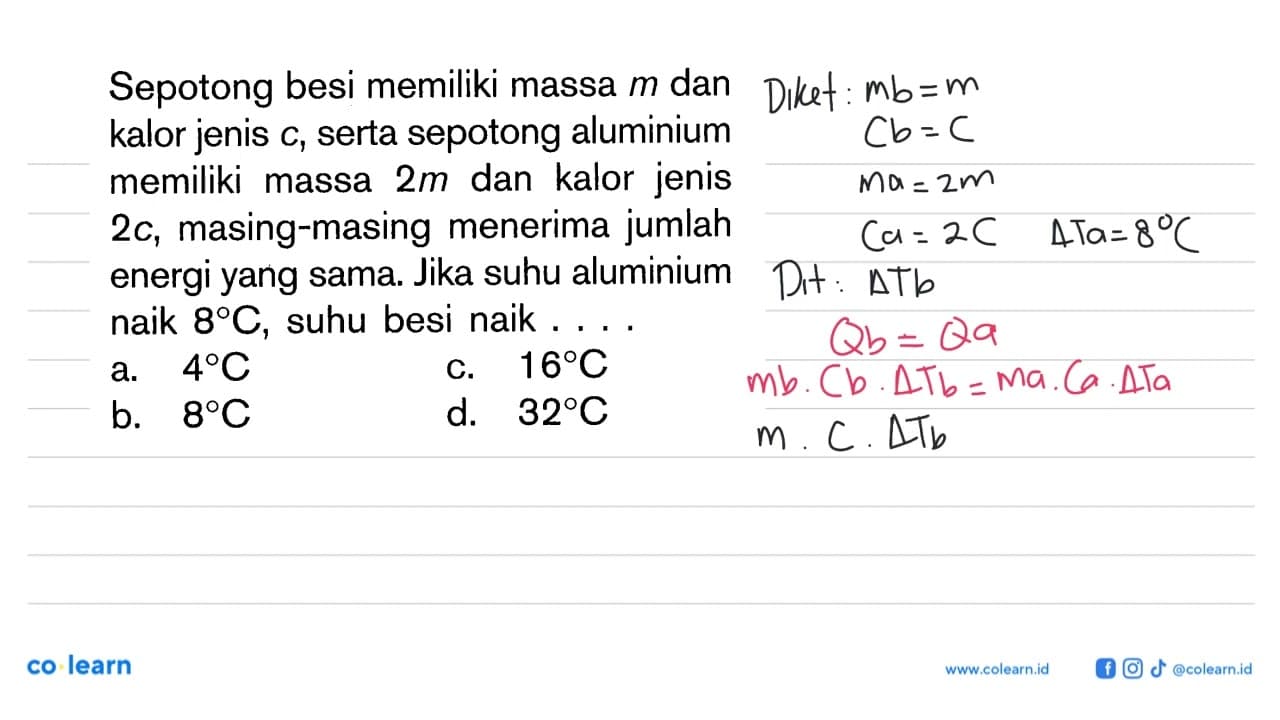 Sepotong besi memiliki massa m dan
kalor jenis c, serta sepotong aluminium
memiliki massa 2m dan kalor jenis
2c, masing-masing menerima jumlah
energi yang sama. Jika suhu aluminium
naik 8°C, suhu besi naik . . . .
a. 4°C c. 16°C
b. 8°C d. 32°C
Diket : mb = m
Cb = C
ma = 2m
Ca = 2C ΔTa = 8°C
Dit : ΔTb
Qb = Qa
mb . Cb . ΔTb = ma . Ca . ΔTa
m . C . ΔTb
co learn
www.colearn.id @colearn.id